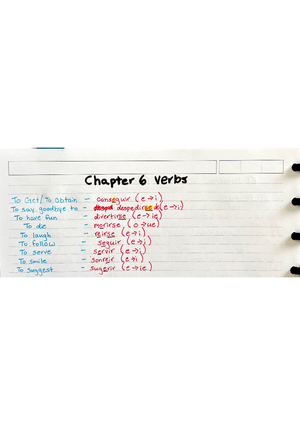 Chapter 6 Verbs
To Get/To Obtain - conseguir (e→i)
To say goodbye to - despedirse (e→i)
To have fun - divertirse (e→ie)
To die - morirse (o→ue)
To laugh - reirse (e→i)
To follow - seguir (e→i)
To serve - servir (e→i)
To smile - sonreir (e→i)
To suggest - sugerir (e→ie)